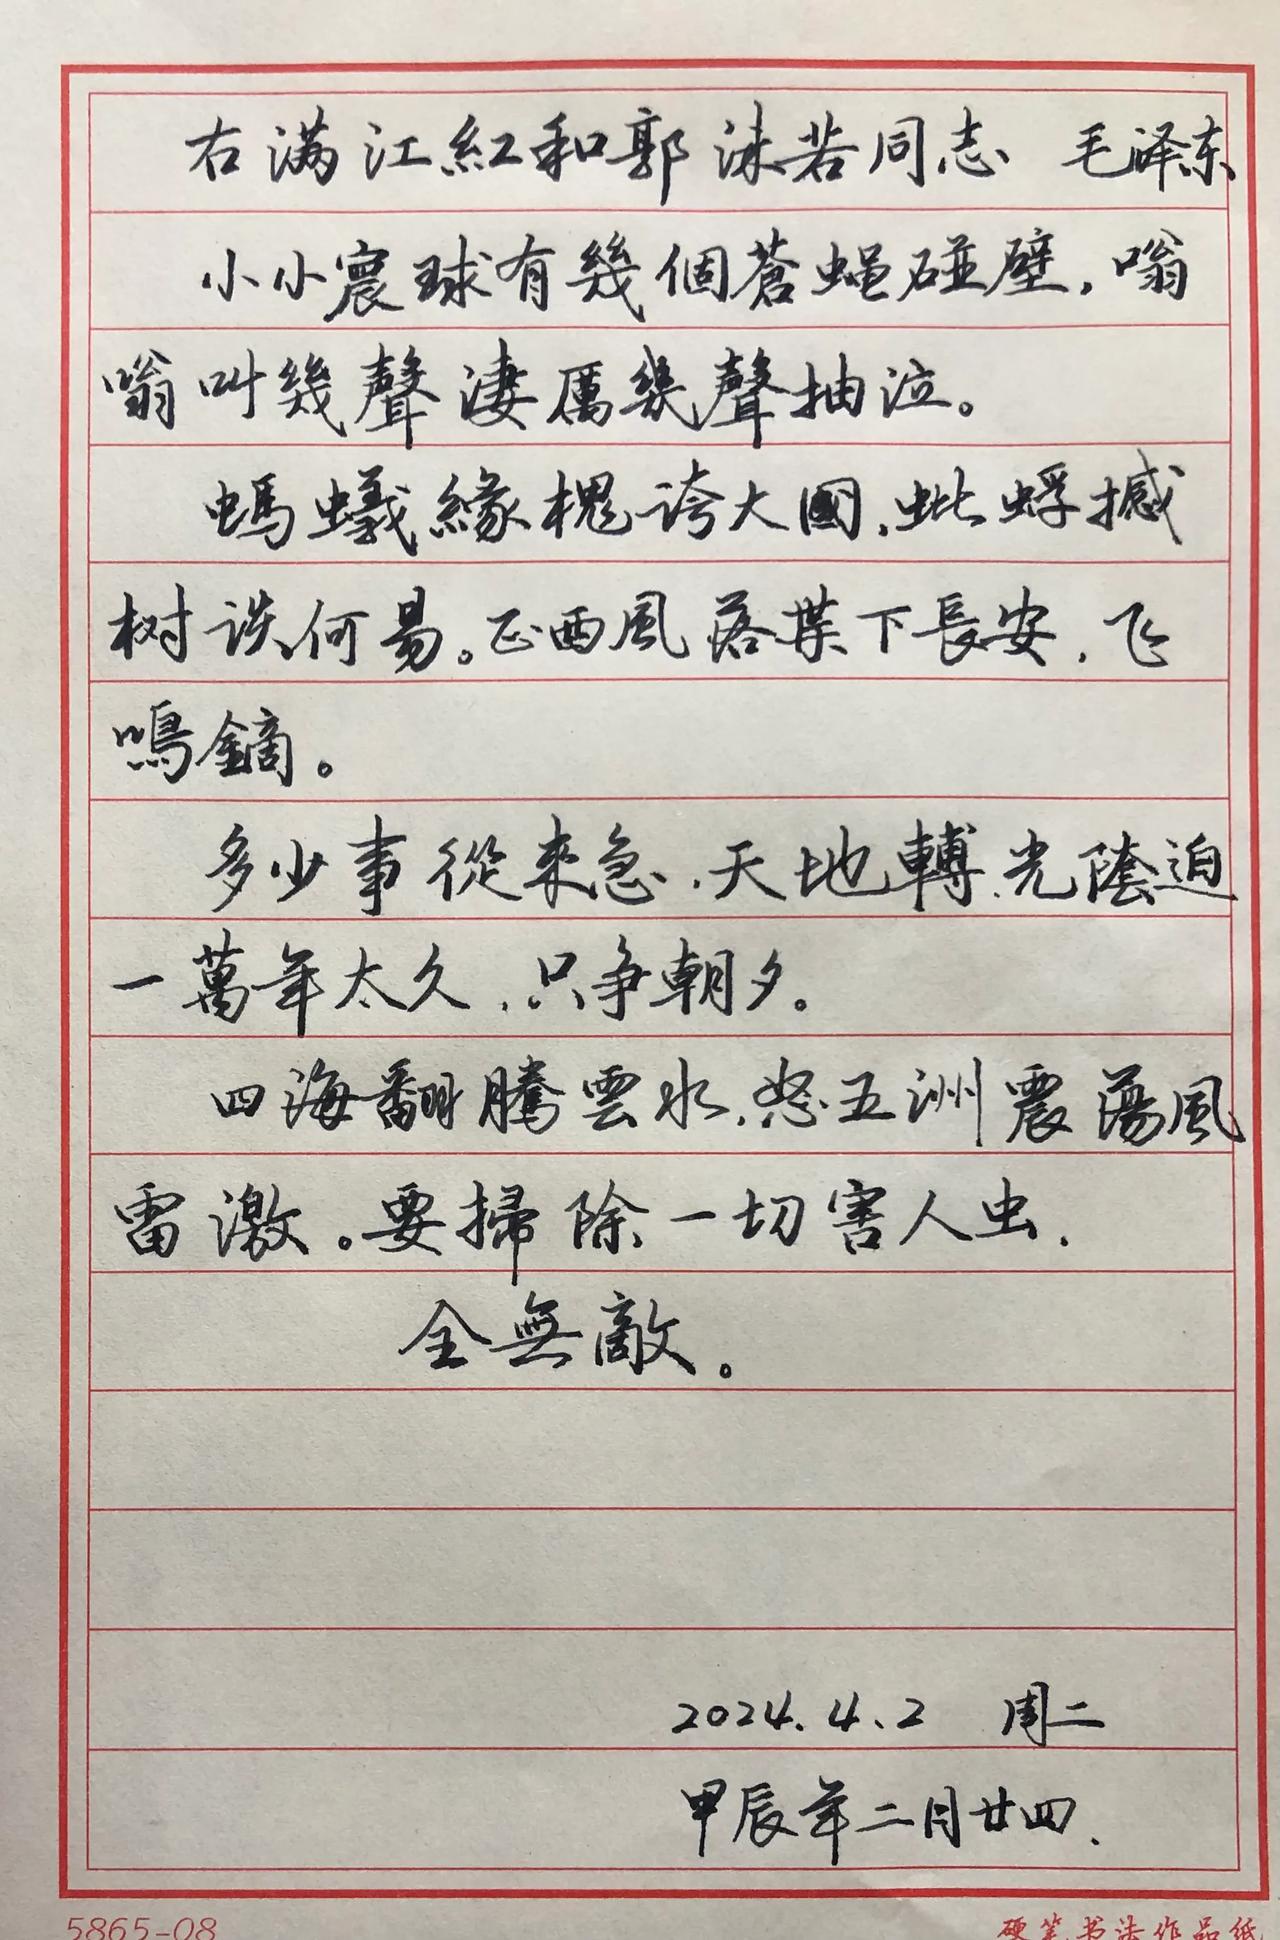 右满江紅和郭沫若同志 毛泽东
小小寰球有幾個蒼蝇碰壁,嗡
嗡叫幾聲淒厲幾聲抽泣。
螞蟻緣槐誇大國,蚍蜉撼
树谈何易。正西風落葉下長安,飞
鳴鏑。
多少事從來急,天地轉,光陰迫
一萬年太久,只争朝夕。
四海翻騰雲水,怒五洲震蕩風
雷激。要掃除一切害人虫,
全無敵。
2024.4.2 周二
甲辰年二月廿四.
5865-08
硬笔书法作品纸